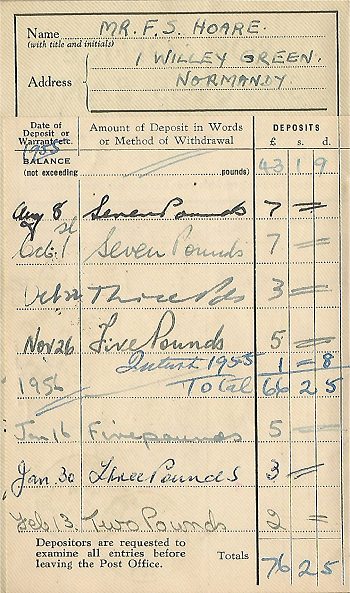 Name MR. F. S. HOARE.
(with title and initials)
1 WILLEY GREEN.
Address NORMANDY.
Date of Deposit or Warrant etc. Amount of Deposit in Words or Method of Withdrawal DEPOSITS £ s. d.
1955
BALANCE
(not exceeding pounds) 43 1 9
Aug 8 Seven Pounds 7 =
Oct. 1st Seven Pounds 7 =
Oct 22 Three Pds 3 =
Nov 26 Five Pounds 5 =
Interest 1955 1 – 8
1956 Total 66 2 5
Jan 16 Five pounds 5 =
Jan. 30 Three Pounds 3 =
Feb 13. Two Pounds 2 =
Depositors are requested to
examine all entries before
leaving the Post Office. Totals 76 2 5